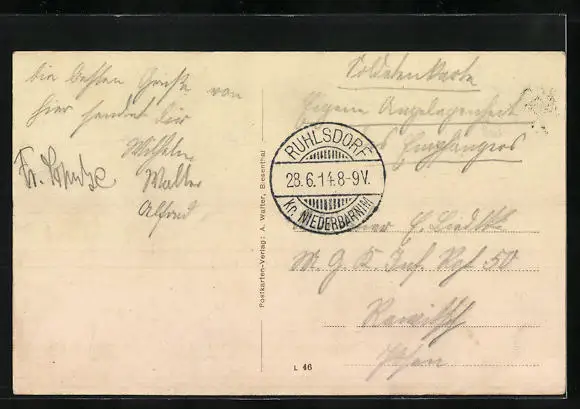 die besten Grüße von
hier sendet dir
Wilhelm
Walter
Alfred
Postkarten-Verlag: A. Walter, Biesenthal
Soldatenkarte
Eigene Angelegenheit
des Empfängers
RUHLSDORF
28.6.14.8-9V.
Kr. NIEDERBARNIM
E. Liedtke
M. G. K. Inf. Rgt. 50
Rawitsch
Posen
L 46